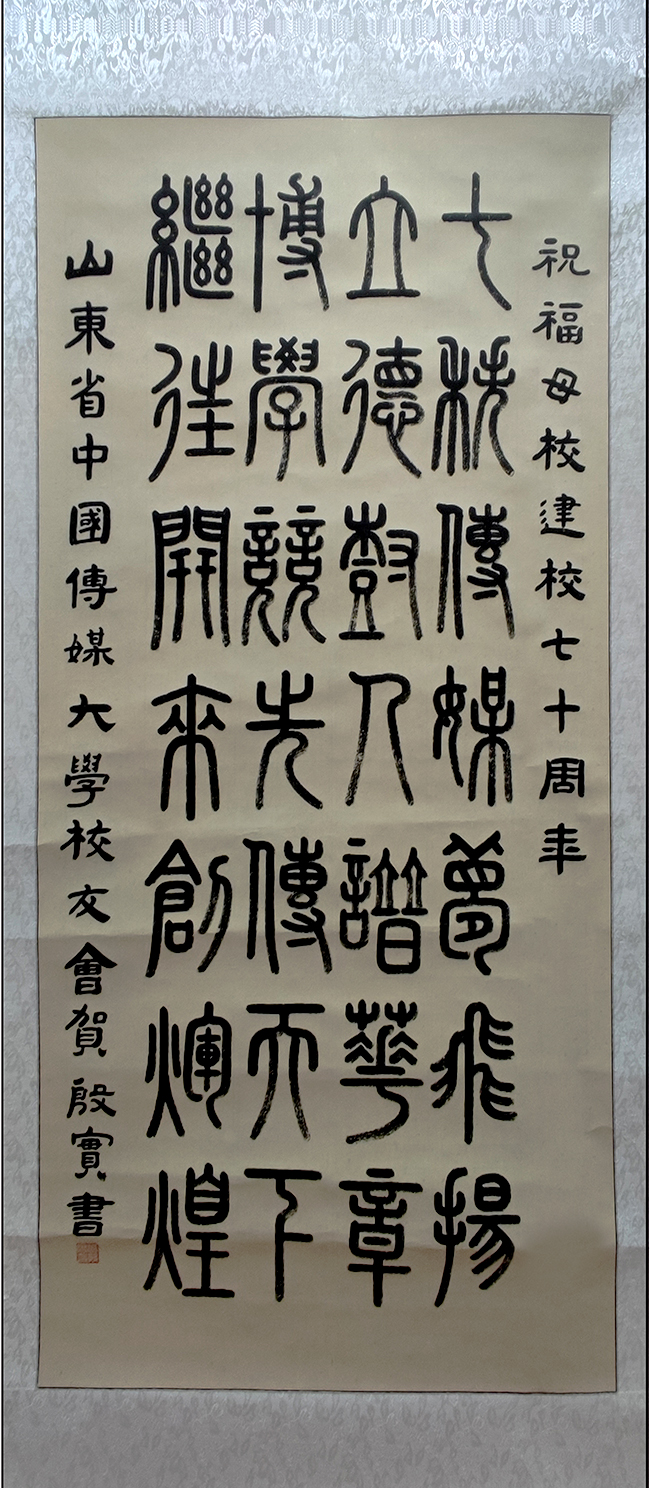 祝福母校建校七十周年
七秩傳媒夢飛揚
立德樹人譜華章
博學競先傳天下
繼往開來創輝煌
山東省中國傳媒大學校友會賀殷實書